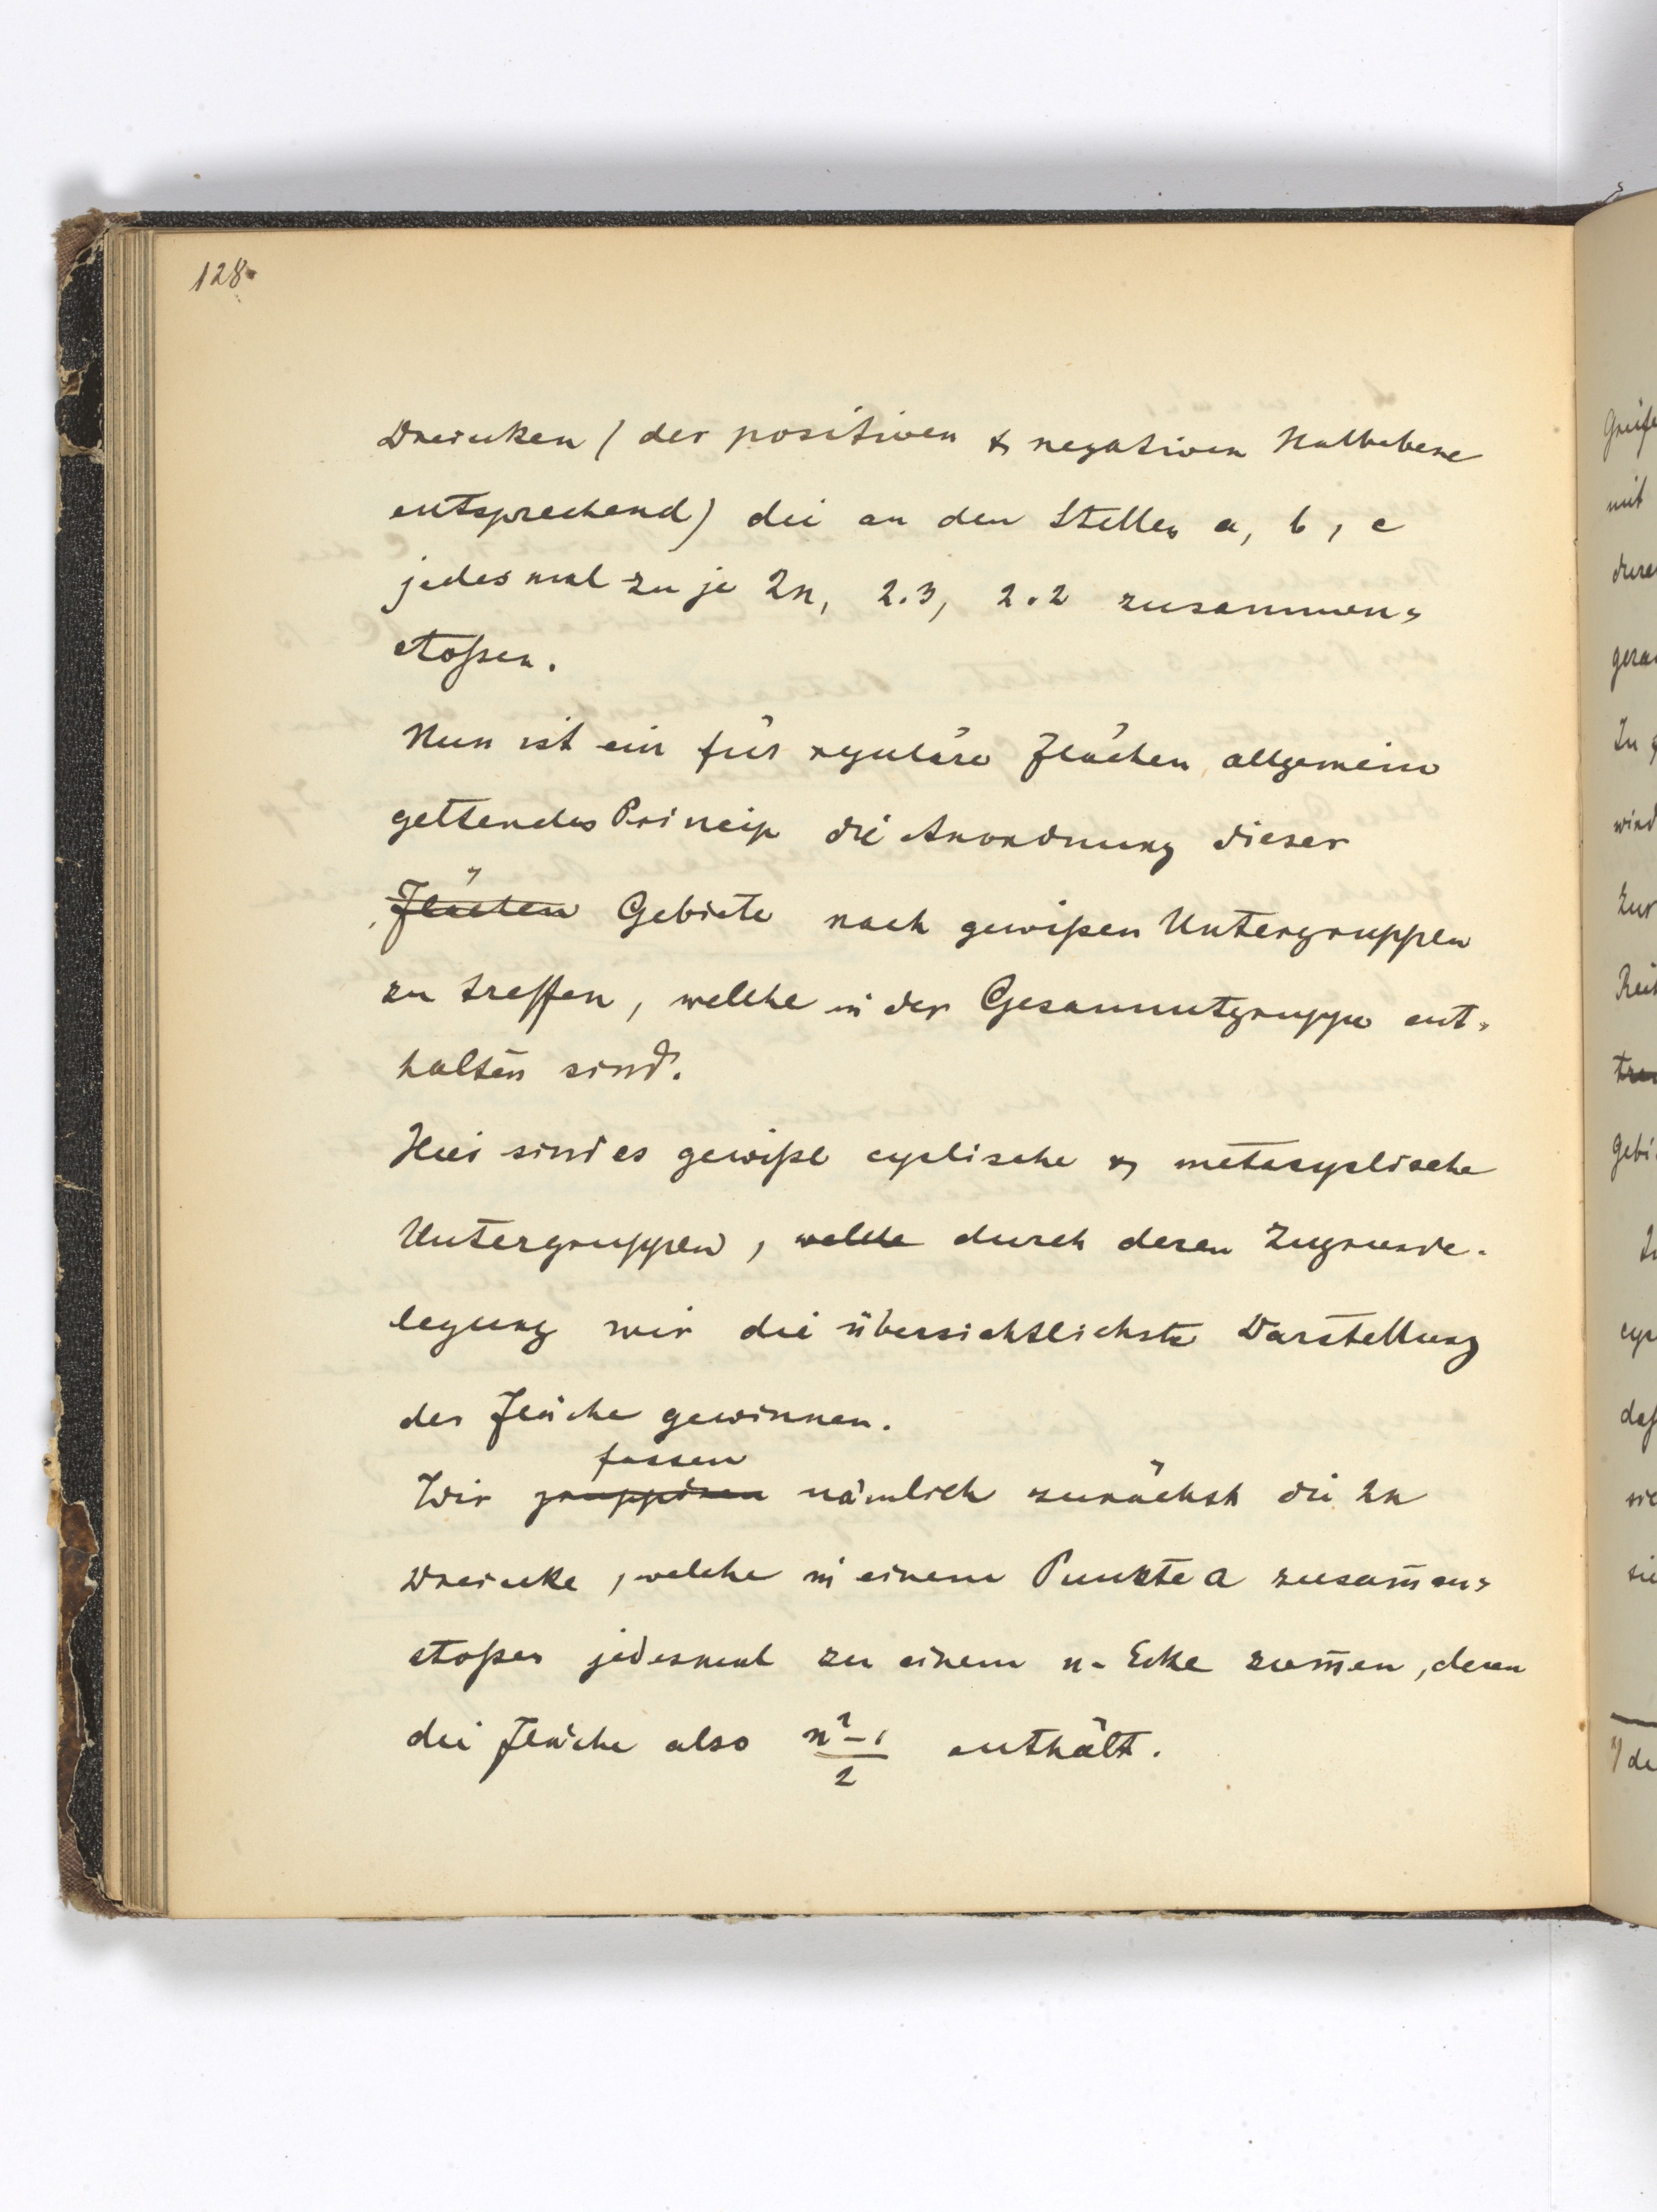 128.
Dreiecken (der positiven & negativen Halbebene
entsprechend) die an den Stellen a, b, c
jedesmal zu je 2n, 2.3, 2.2 zusammen-
stoßen.
Nun ist ein für reguläre Flächen allgemein
geltendes Princip die Anordnung dieser
Flächen Gebiete nach gewißen Untergruppen
zu treffen, welche in der Gesammtgruppe ent-
halten sind.
Hier sind es gewiße cyclische & metacyclische
Untergruppen, welche durch deren Zugrunde-
legung wir die übersichtlichste Darstellung
der Fläche gewinnen.
fassen
Wir gruppiren nämlich zunächst die 2n
Dreiecke, welche in einem Punkte a zusam̅en-
stoßen jedesmal zu einem n-Ecke zusam̅en, deren
die Fläche also n²-1/2 enthält.
Greife
mit
gera
In
wird
Zur
Gebi
cyc
daß
sie
sie